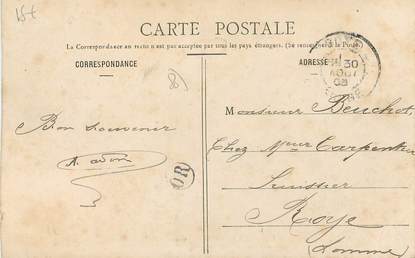 15t
CARTE POSTALE
La Correspondance au recto n'est pas acceptée par tous les pays étrangers. (Se renseigner à la Poste).
CORRESPONDANCE
ADRESSE
30
AOUT
03
Monsieur Beuchot,
Chez Mr Carpentier
huissier
Roye
(Somme)
Bon souvenir
OR